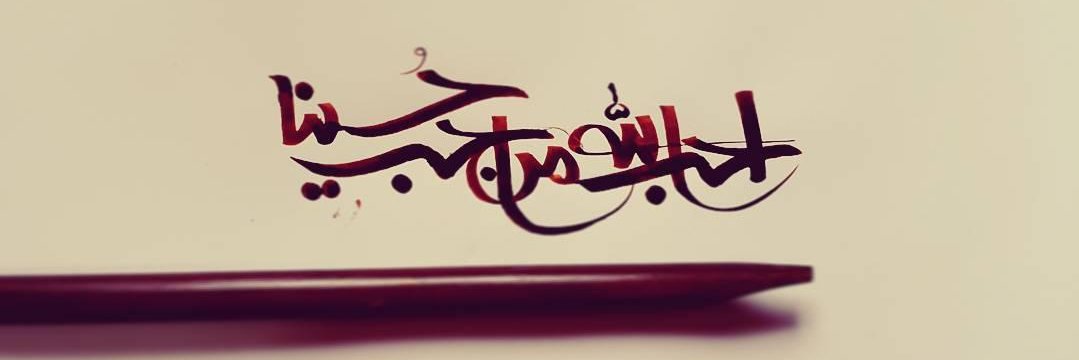 احب الله من احب حسینا